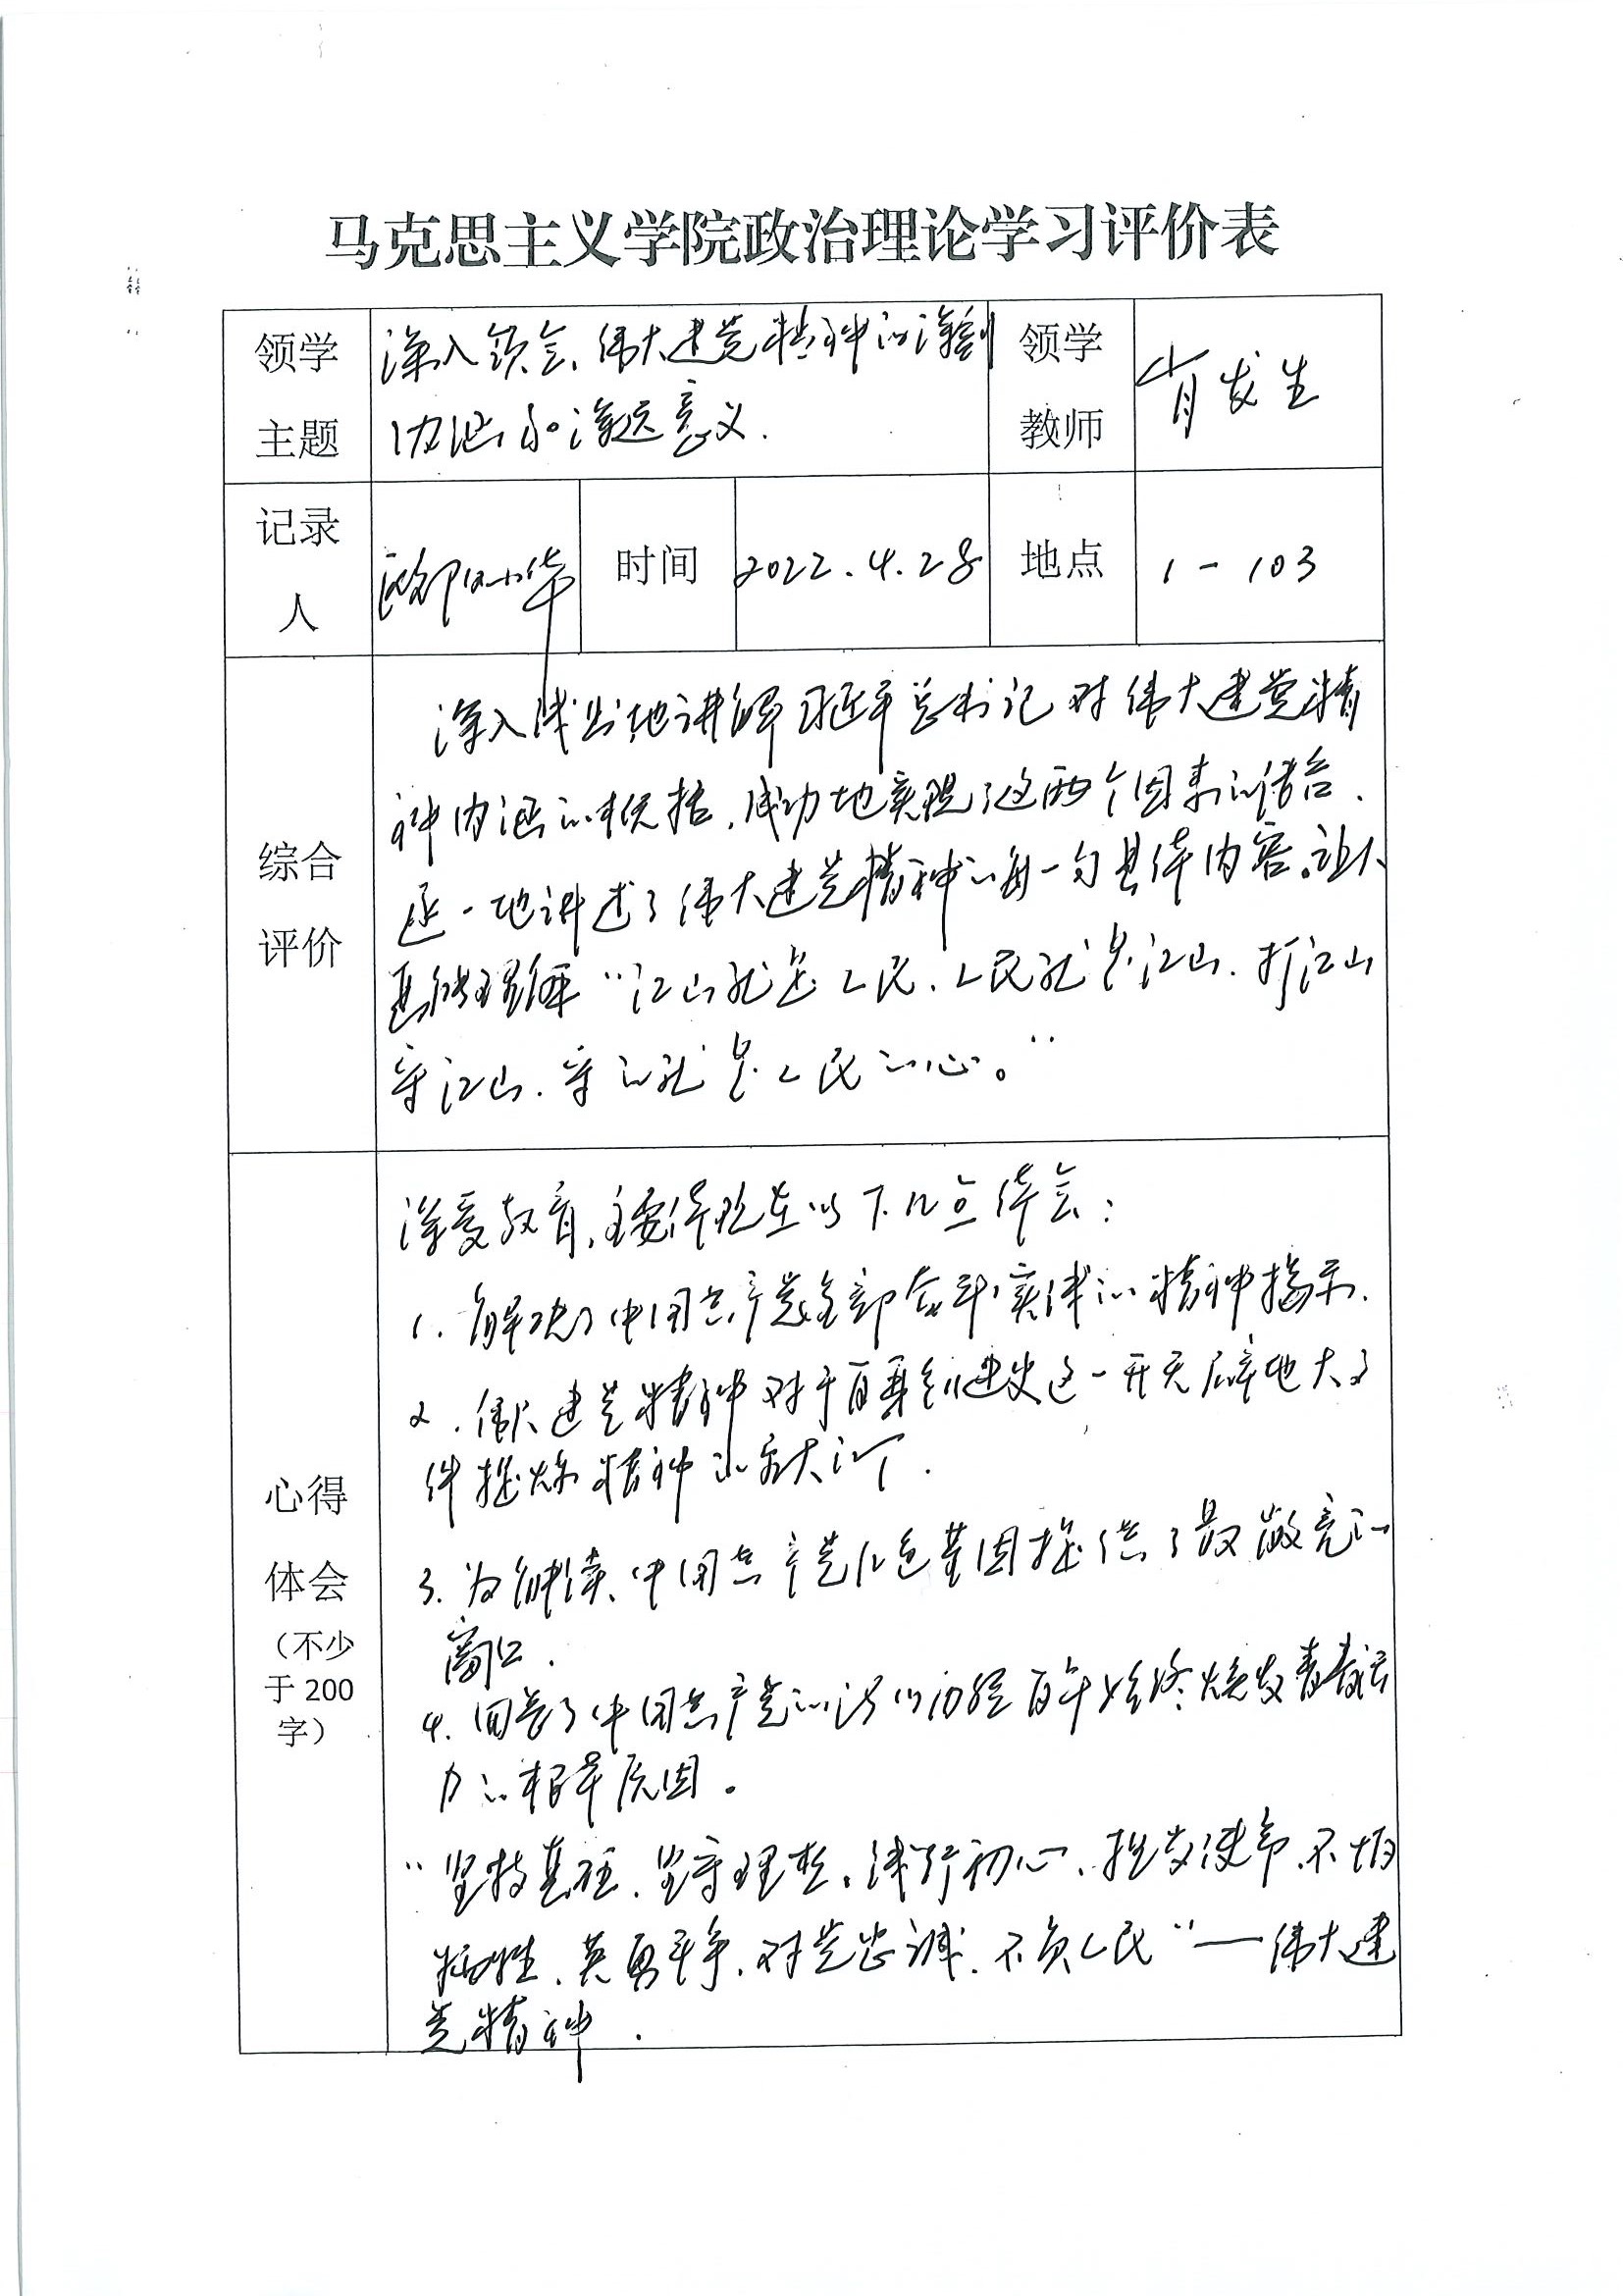 马克思主义学院政治理论学习评价表
领学
主题
深入领会伟大建党精神的深刻
内涵和深远意义.
领学
教师
肖发生
记录
人
欧阳小华
时间
2022.4.28
地点
1-103
综合
评价
深入浅出地讲解习近平总书记对伟大建党精
神内涵的概括,成功地实现了这两个因素的结合.
逐一地讲述了伟大建党精神的每一句具体内容。让人
更能理解“江山就是人民、人民就是江山.打江山
守江山.守的就是人民的心。”
心得
体会
（不少
于200
字）
深受教育,主要体现在以下几点体会:
1. 解决了中国共产党全部奋斗实践的精神揭示.
2. 伟大建党精神对于百年创建史这一开天辟地大事
件提炼精神
3. 为解读中国共产党红色基因提供了最敞亮的
窗口.
4. 回答了中国共产党历经百年始终焕发青春活
力的根本原因。
“坚持真理、坚守理想,践行初心、担当使命、不怕
牺牲、英勇斗争、对党忠诚、不负人民”——伟大建
党精神.